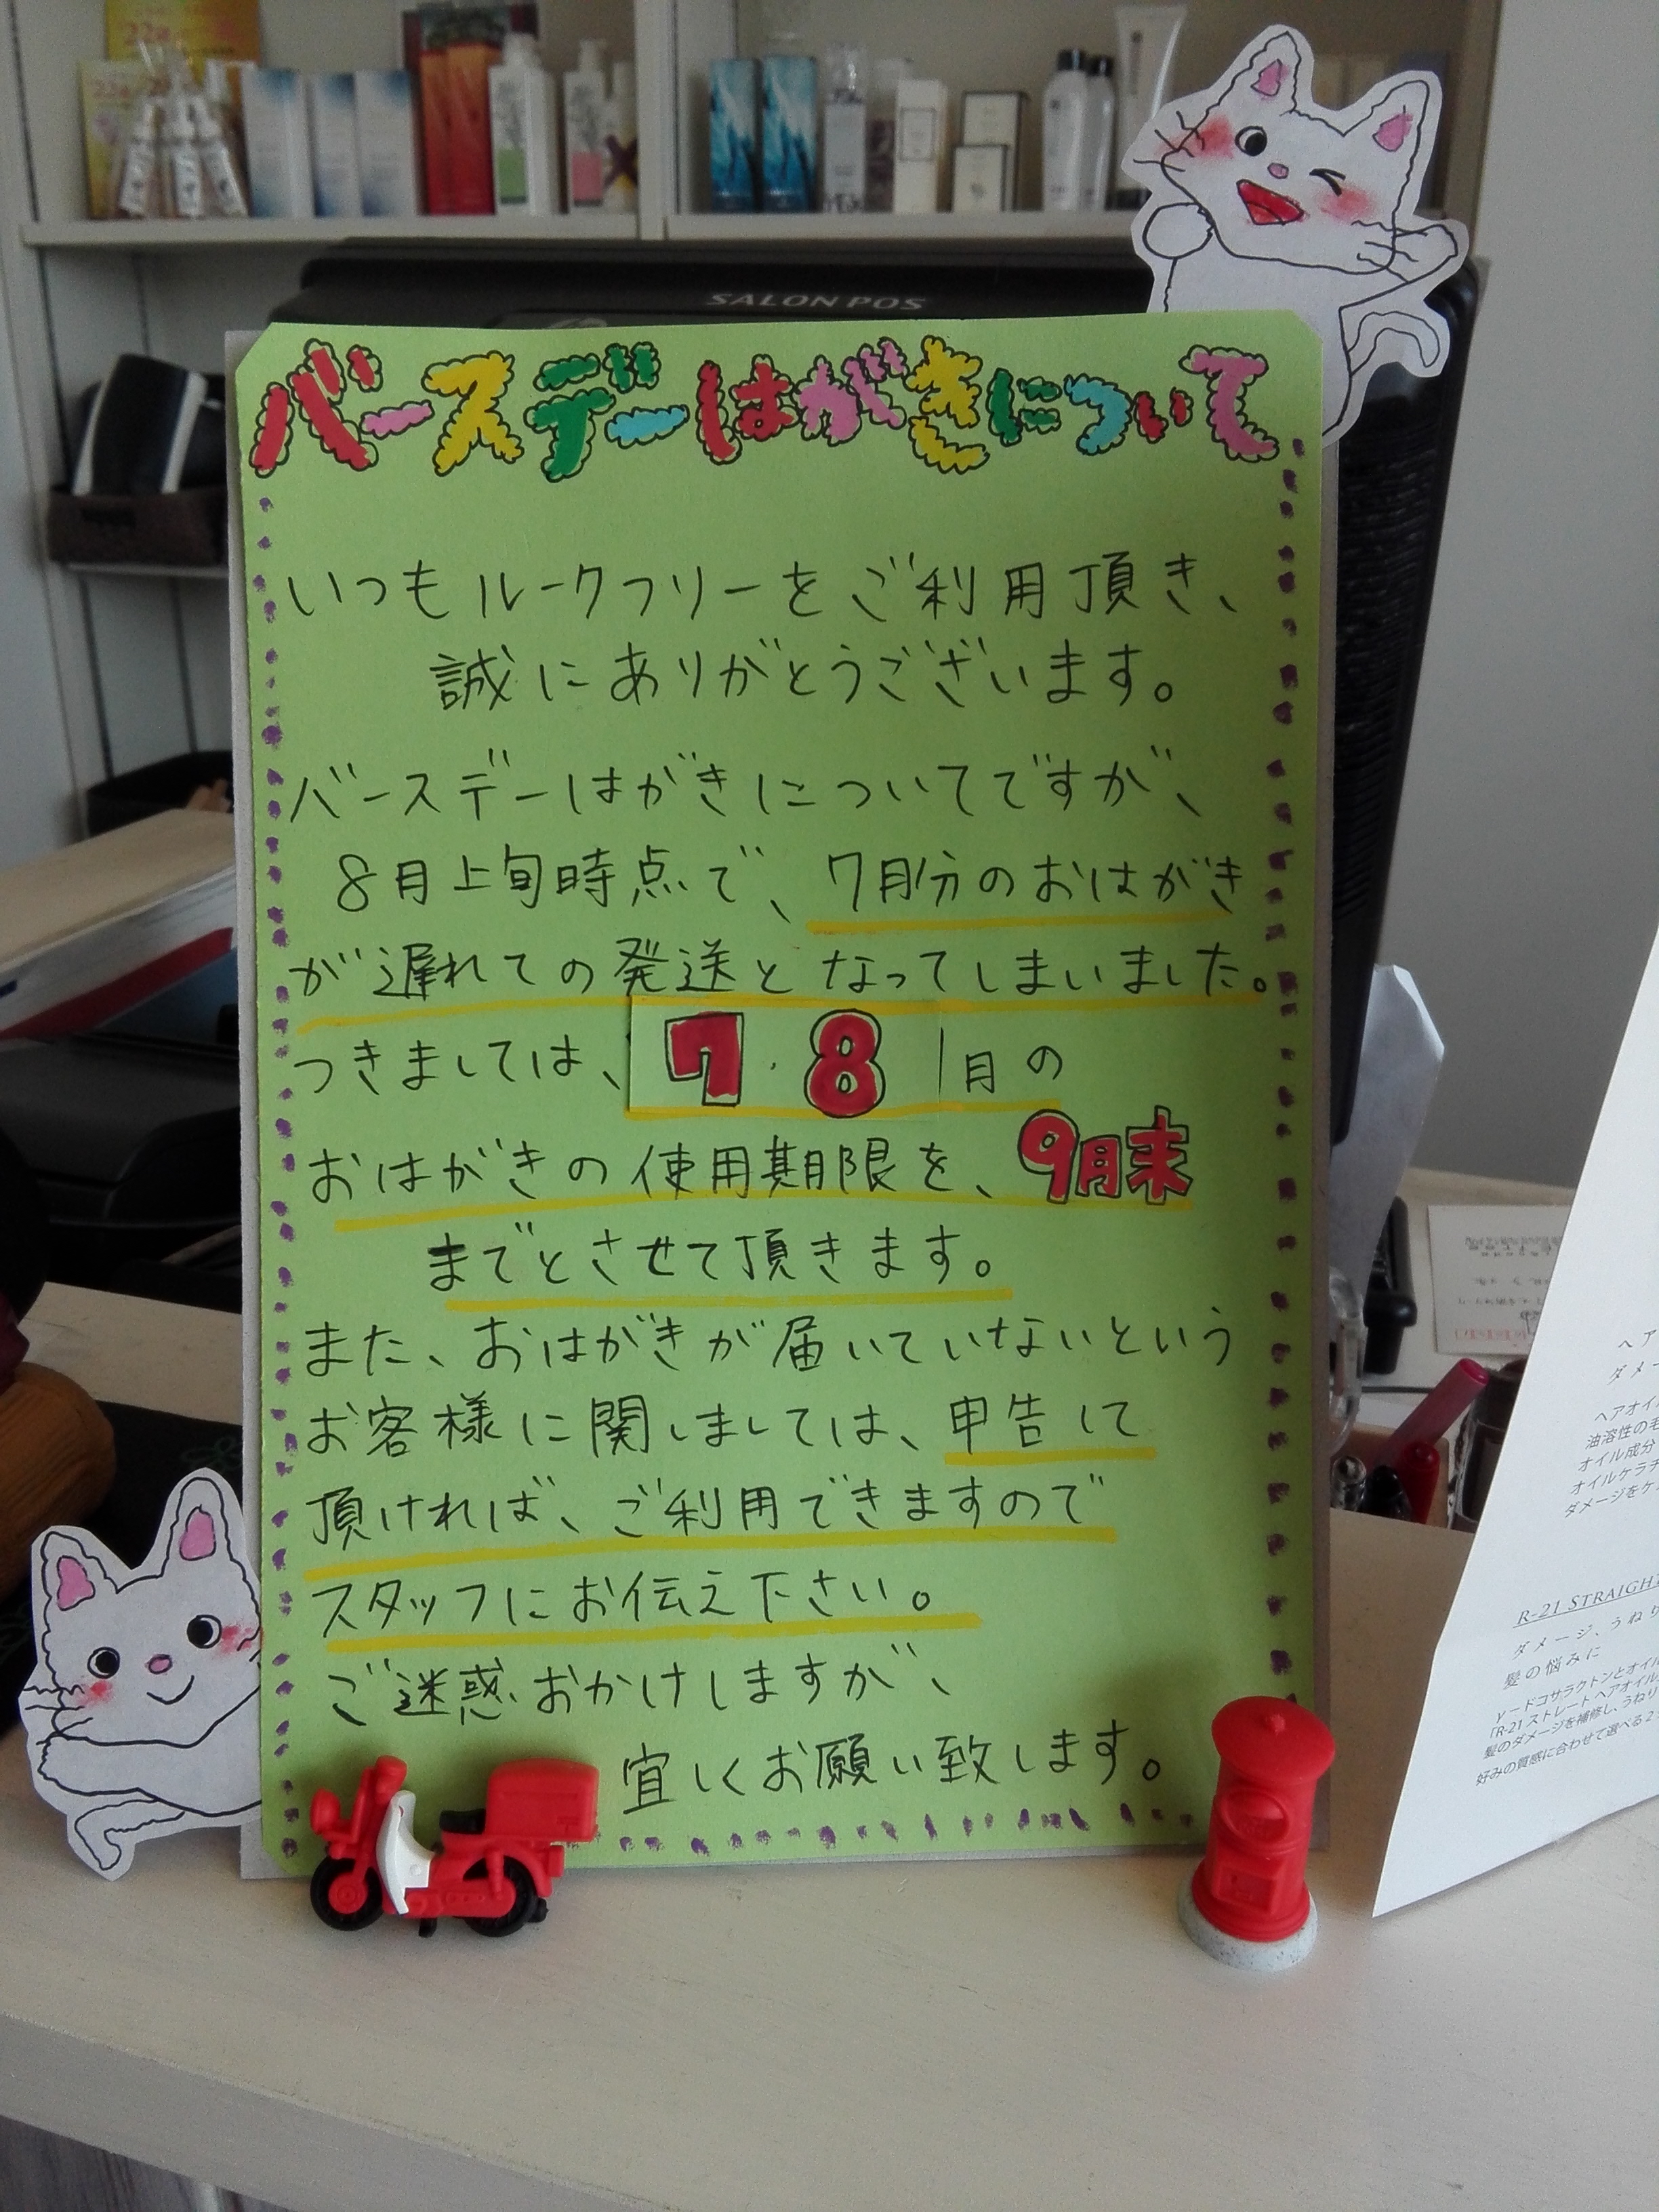 SALON POS
バースデーはがきについて
いつもルークフリーをご利用頂き、
誠にありがとうございます。
バースデーはがきについてですが、
8月上旬時点で、7月分のおはがき
が遅れての発送となってしまいました。
つきましては、7・8月の
おはがきの使用期限を、9月末
までとさせて頂きます。
また、おはがきが届いていないという
お客様に関しましては、申告して
頂ければ、ご利用できますので
スタッフにお伝え下さい。
ご迷惑おかけしますが、
宜しくお願い致します。
ヘア
ダメー
ヘアオイ
油溶性の毛
オイル成分
オイルケラチ
ダメージをケ
R-21 STRAIGHT
ダメージ、うねり
髪の悩みに
γードコサラクトンとオイル
「R-21 ストレート ヘアオイル
髪のダメージを補修し、うねり
好みの質感に合わせて選べる2